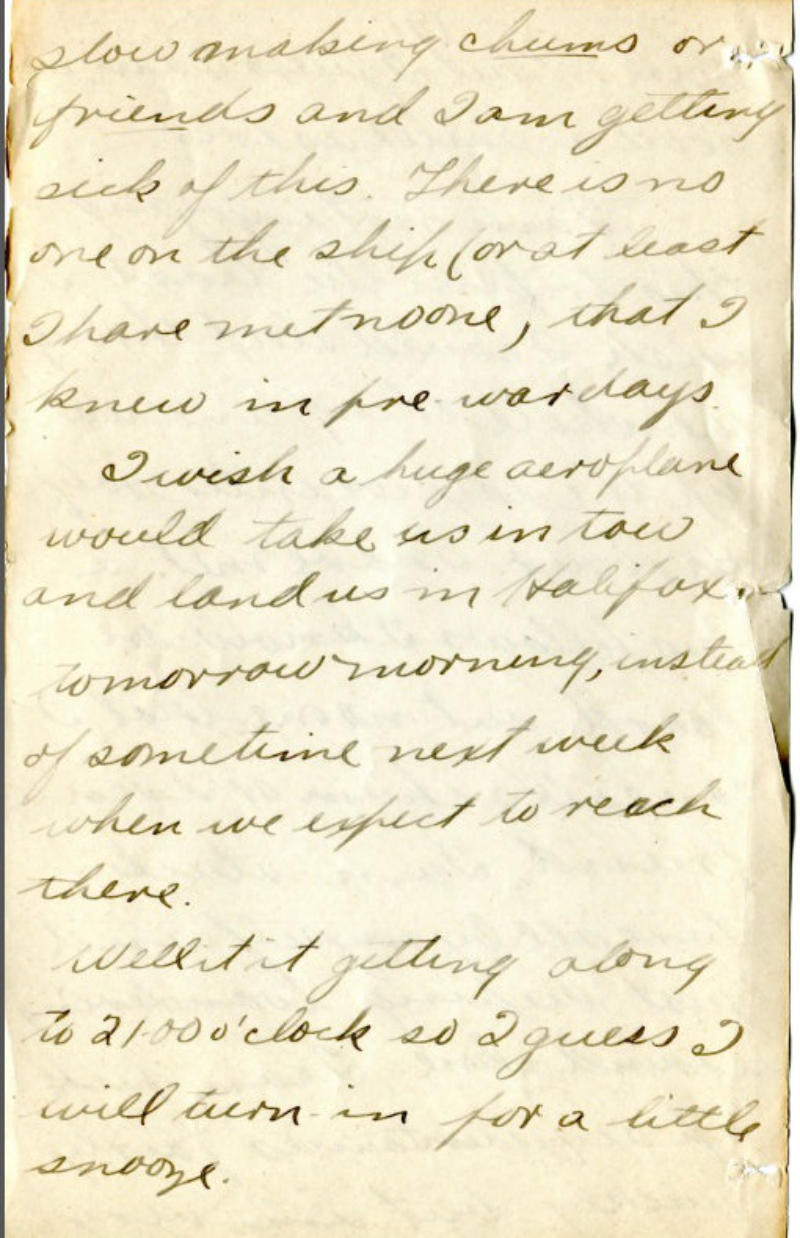 slow making chums or
friends and I am getting
sick of this. There is no
one on the ship (or at least
I have met no one, that I
knew in pre-war days.
I wish a huge aeroplane
would take us in tow
and land us in Halifax
tomorrow morning, instead
of sometime next week
when we expect to reach
there.
Well it it getting along
to 21.00 o'clock so I guess I
will turn in for a little
snooze.